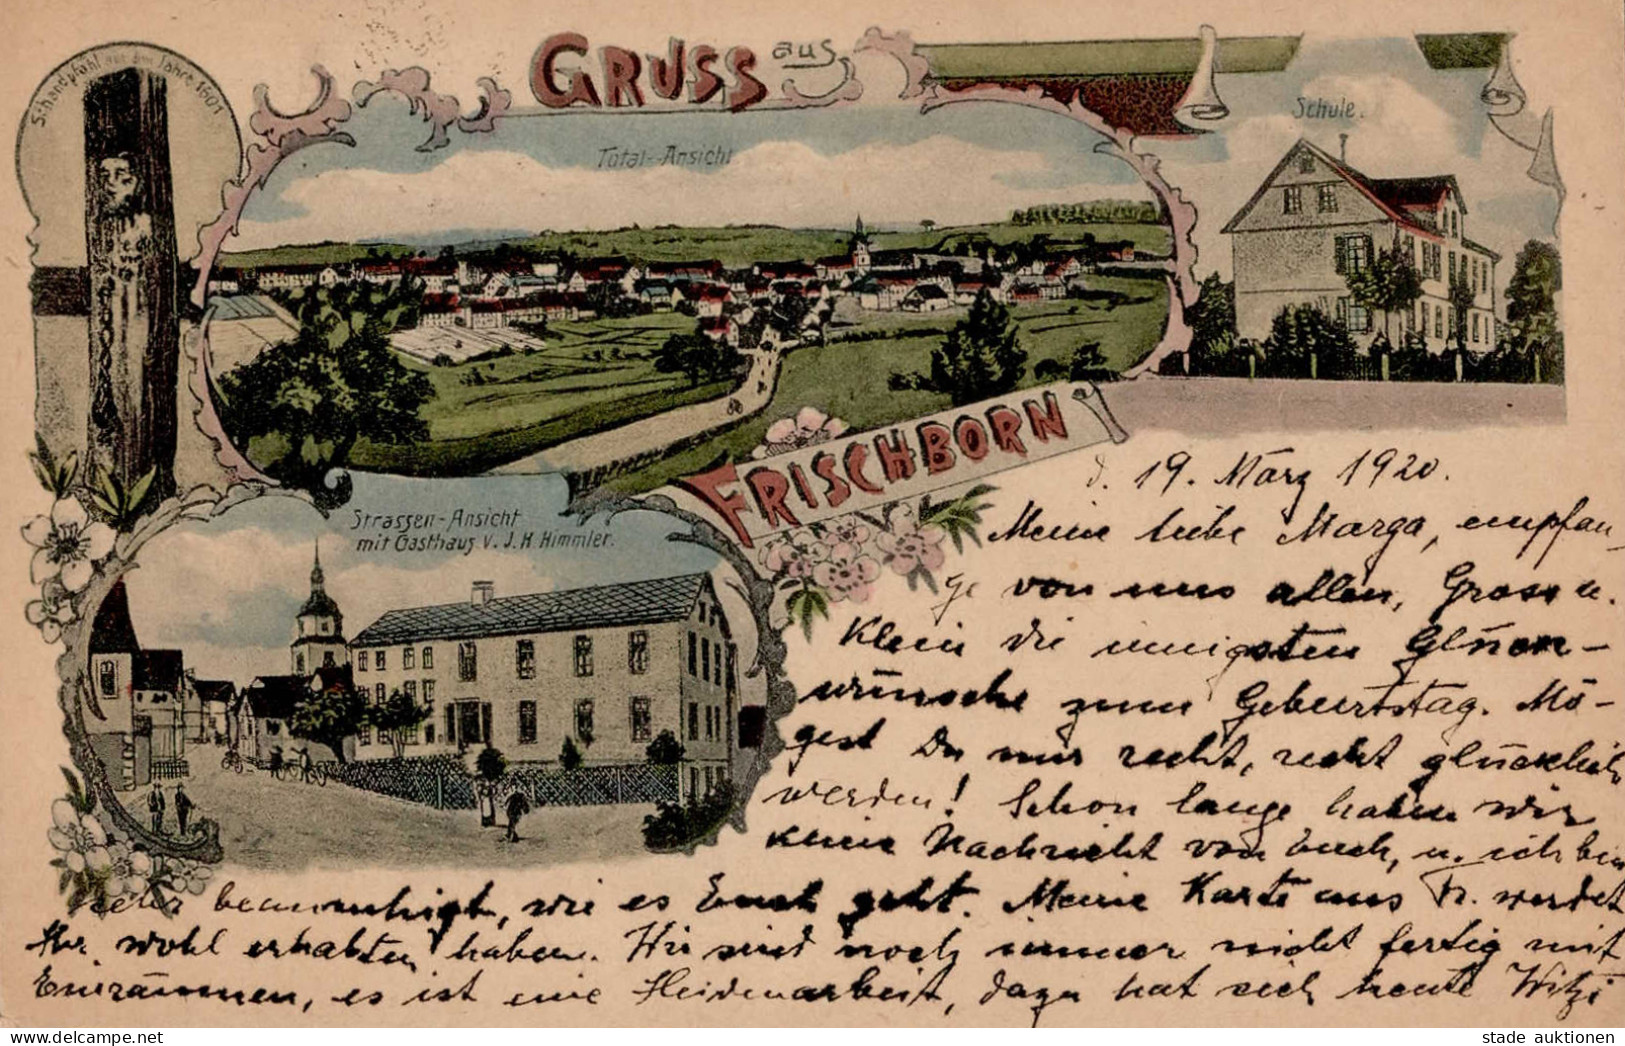 Schandpfahl aus dem Jahre 1601
GRUSS aus
Total-Ansicht
Schule.
FRISCHBORN
Strassen-Ansicht
mit Gasthaus v. J. H. Himmler.
d. 19. März 1920.
Meine liebe Marga, empfan-
ge von uns allen, Gross u.
Klein die innigsten Glück-
wünsche zum Geburtstag. Mö-
gest Du nur recht, recht glücklich
werden! Schon lange haben wir
keine Nachricht von Euch, u. ich bin
sehr beunruhigt, wie es Euch geht. Meine Karte aus Fr. werdet
Ihr wohl erhalten haben. Wir sind noch immer nicht fertig mit
Einräumen, es ist eine Heidenarbeit, dazu hat sich heute Witzi
stade auktionen